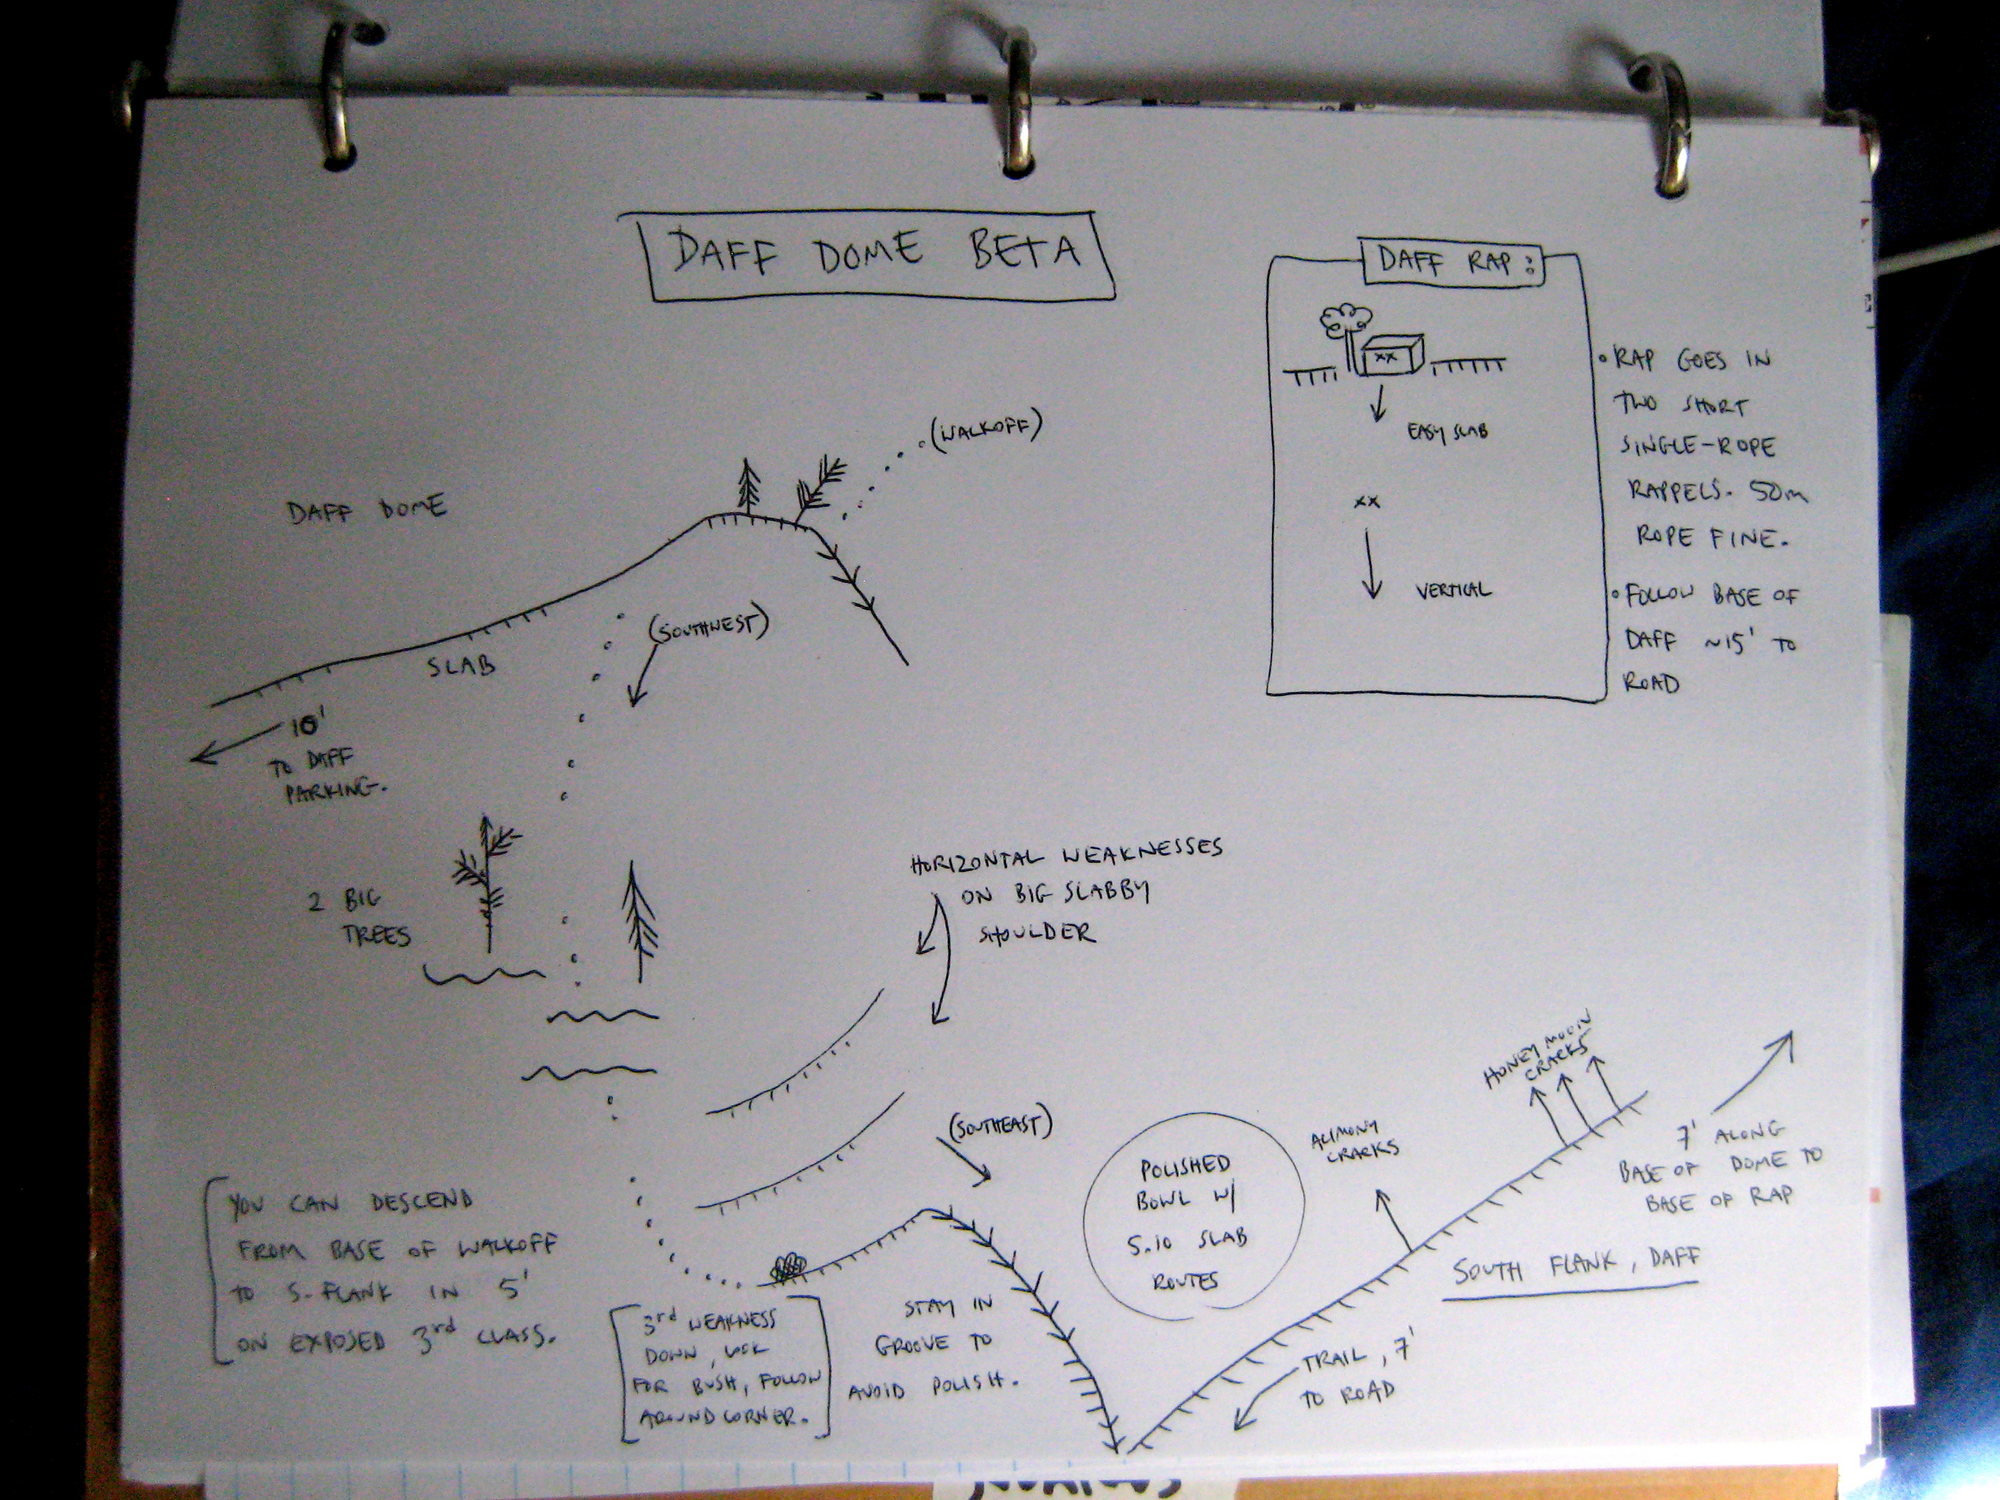 DAFF DOME BETA
DAFF RAP:
EASY SLAB
XX
XX
VERTICAL
• RAP GOES IN
TWO SHORT
SINGLE-ROPE
RAPPELS. 50m
ROPE FINE.
• FOLLOW BASE OF
DAFF ~15' TO
ROAD
(WALKOFF)
DAFF DOME
(SOUTHWEST)
SLAB
10'
TO DAFF
PARKING.
2 BIG
TREES
HORIZONTAL WEAKNESSES
ON BIG SLABBY
SHOULDER
(SOUTHEAST)
POLISHED
BOWL W/
5.10 SLAB
ROUTES
ALIMONY
CRACKS
HONEY MOON
CRACKS
7' ALONG
BASE OF DOME TO
BASE OF RAP
SOUTH FLANK, DAFF
TRAIL, 7'
TO ROAD
YOU CAN DESCEND
FROM BASE OF WALKOFF
TO S. FLANK IN 5'
ON EXPOSED 3rd CLASS.
3rd WEAKNESS
DOWN, LOOK
FOR BUSH, FOLLOW
AROUND CORNER.
STAY IN
GROOVE TO
AVOID POLISH.